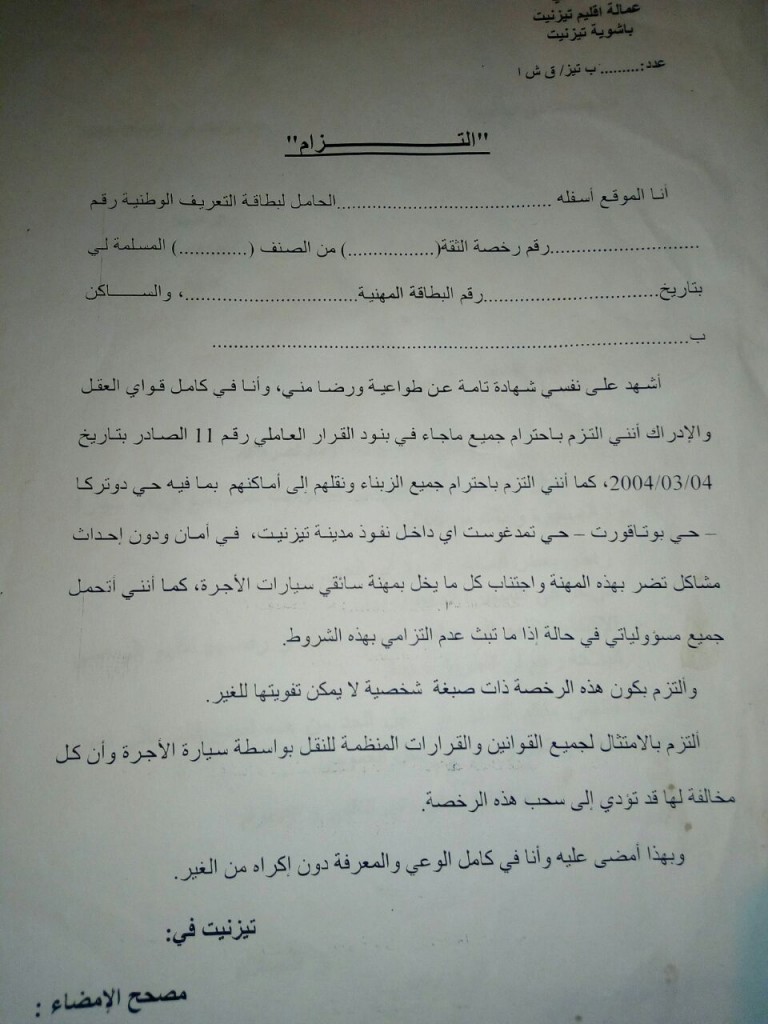 عمالة اقليم تيزنيت
باشوية تيزنيت
عدد:.........ب تيز/ ق ش ا
"التـــــــــــــزام"
أنا الموقع أسفله ..................................الحامل لبطاقة التعريف الوطنية رقم
............................رقم رخصة الثقة(................) من الصنف (.............) المسلمة لي
بتاريخ..................................رقم البطاقة المهنية.................................، والســـــاكن
ب...........................................................................................
أشهد على نفسي شهادة تامة عن طواعية ورضا مني، وأنا في كامل قواي العقل
والإدراك أنني التزم باحترام جميع ماجاء في بنود القرار العاملي رقم 11 الصادر بتاريخ
2004/03/04، كما أنني التزم باحترام جميع الزبناء ونقلهم إلى أماكنهم بما فيه حي دوتركا
– حي بوتاقورت – حي تمدغوست اي داخل نفوذ مدينة تيزنيت، في أمان ودون إحداث
مشاكل تضر بهذه المهنة واجتناب كل ما يخل بمهنة سائقي سيارات الأجرة، كما أنني أتحمل
جميع مسؤولياتي في حالة إذا ما تبث عدم التزامي بهذه الشروط.
وألتزم بكون هذه الرخصة ذات صبغة شخصية لا يمكن تفويتها للغير.
ألتزم بالامتثال لجميع القوانين والقرارات المنظمة للنقل بواسطة سيارة الأجرة وأن كل
مخالفة لها قد تؤدي إلى سحب هذه الرخصة.
وبهذا أمضى عليه وأنا في كامل الوعي والمعرفة دون إكراه من الغير.
تيزنيت في:
مصحح الإمضاء :